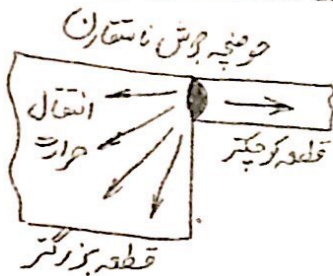 حوضچه جوش نامتقارن
انتقال
حرارت
قطعه کوچکتر
قطعه بزرگتر